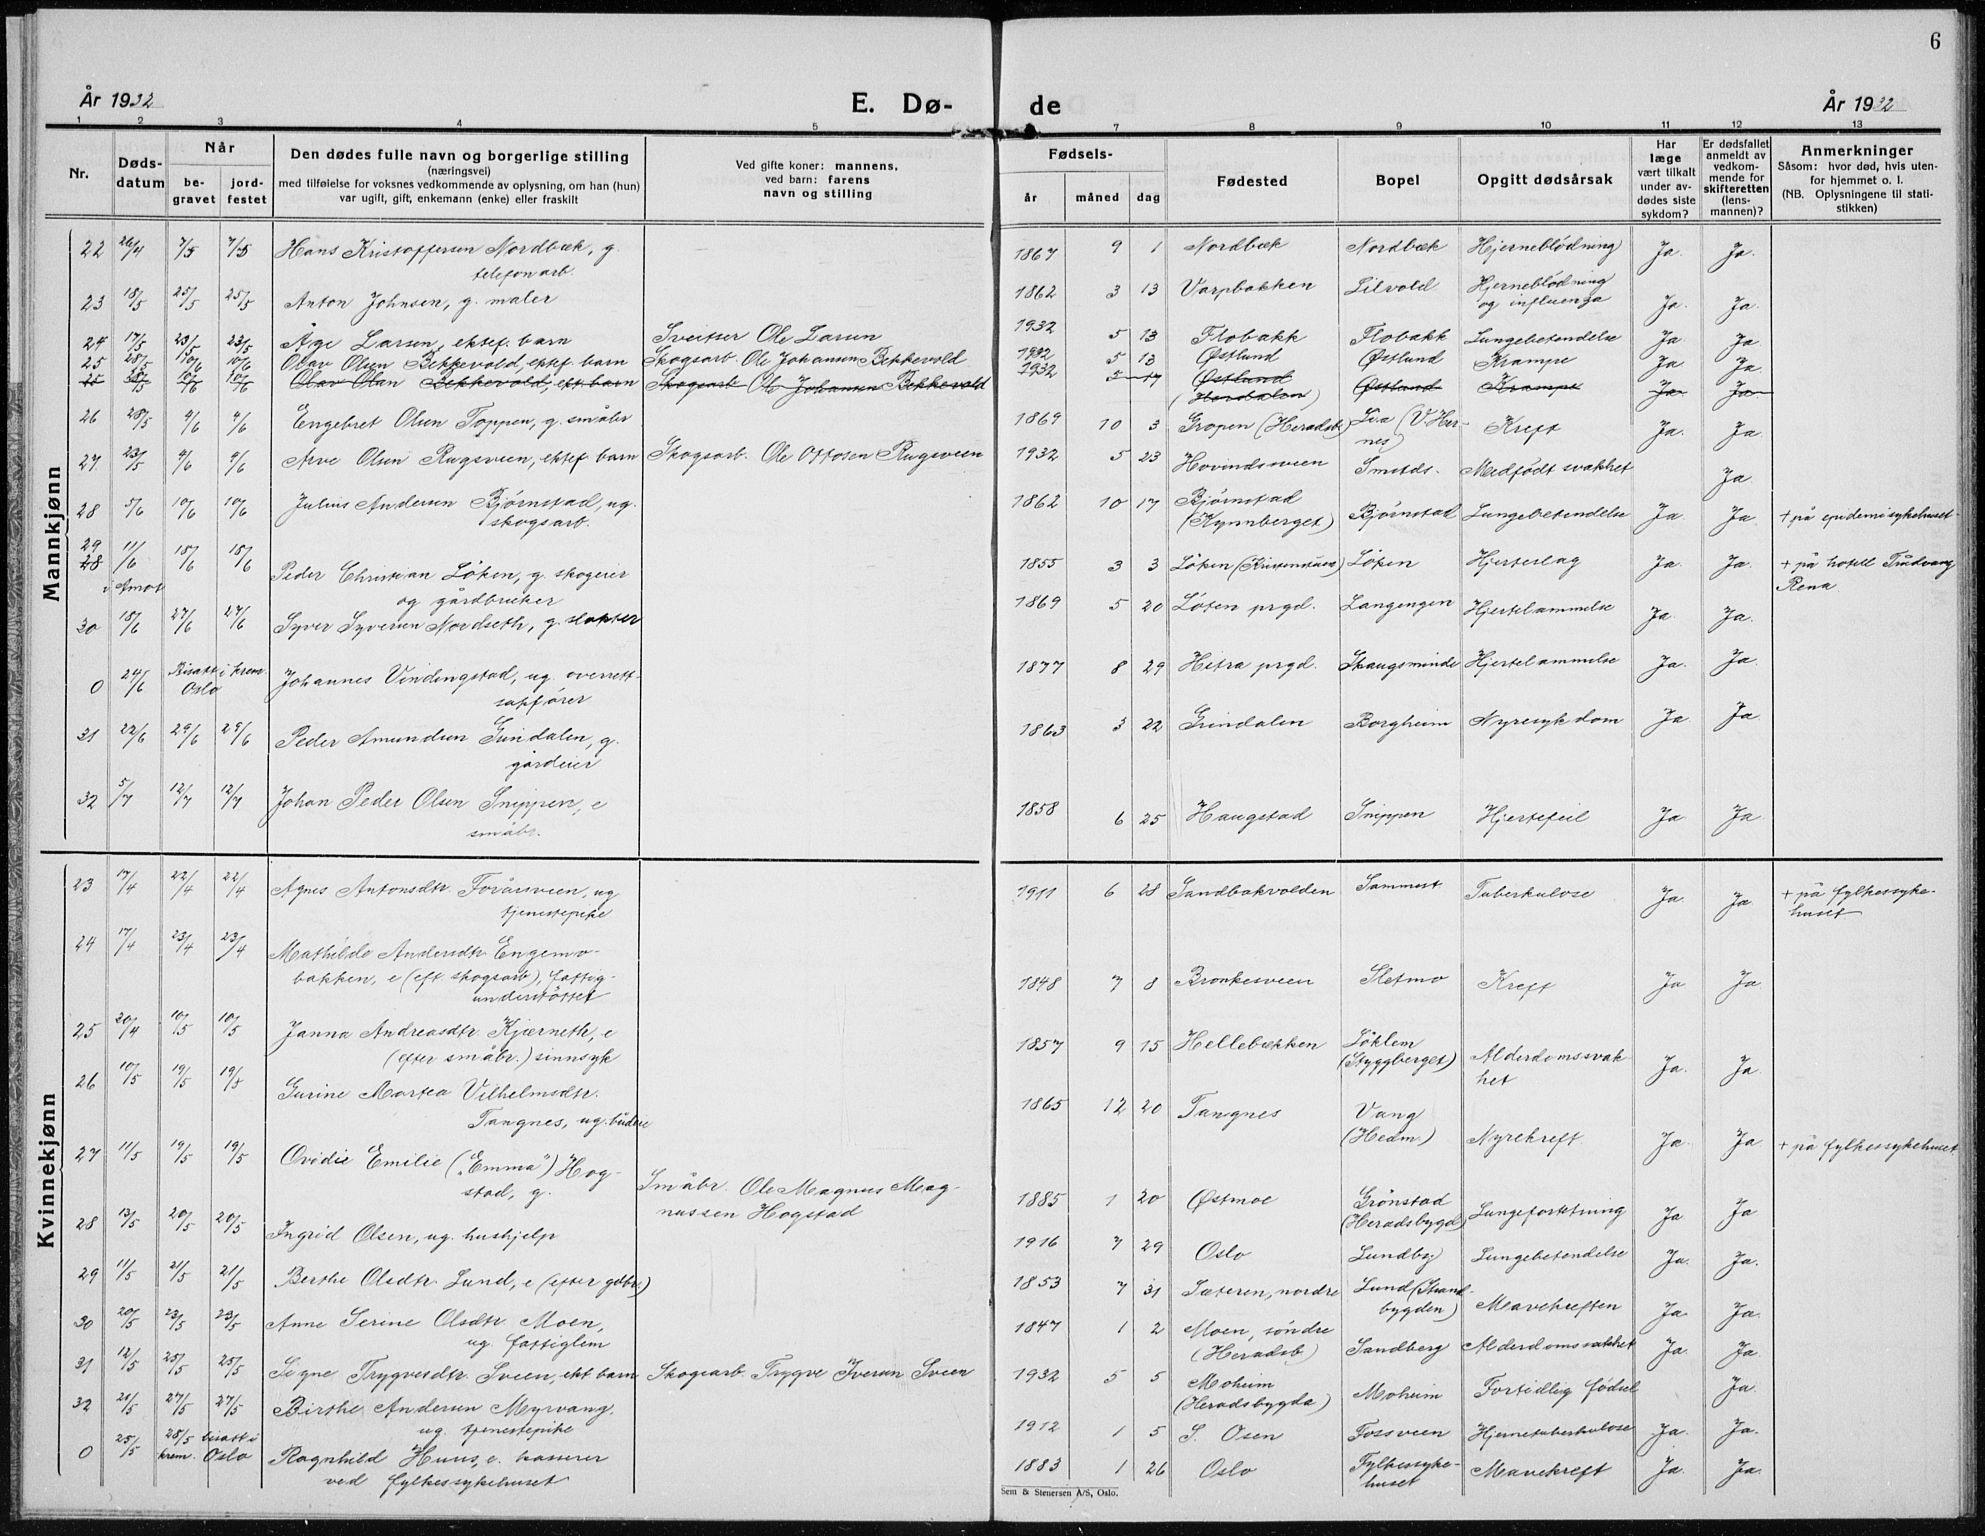 6
År 1932 E. Dø- de År 1932
1 2 3 4 5 7 8 9 10 11 12 13
Nr.
Døds-
datum
Når
be-
gravet
jord-
festet
Den dødes fulle navn og borgerlige stilling
(næringsvei)
med tilføielse for voksnes vedkommende av oplysning, om han (hun)
var ugift, gift, enkemann (enke) eller fraskilt
Ved gifte koner: mannens,
ved barn: farens
navn og stilling
Fødsels-
år måned dag
Fødested
Bopel
Opgitt dødsårsak
Har
læge
vært tilkalt
under av-
dødes siste
sykdom?
Er dødsfallet
anmeldt av
vedkom-
mende for
skifteretten
(lens-
mannen)?
Anmerkninger
Såsom: hvor død, hvis uten-
for hjemmet o. l.
(NB. Oplysningene til stati-
stikken)
Mannkjønn
22 26/4 7/5 7/5 Hans Kristoffersen Nordbæk, g. 1867 9 1 Nordbæk Nordbæk Hjerneblödning Ja. Ja.
telefonarb.
23 18/5 25/5 25/5 Anton Johnsen, g. maler 1862 3 13 Varpbakken Lilvold Hjerneblödning Ja. Ja.
og influenza
24 17/5 23/5 23/5 Åge Larsen, ektef. barn Sveitser Ole Larsen 1932 5 13 Flobakk Flobakk Lungebetendelse Ja. Ja.
25 28/5 10/6 10/6 Olav Olsen Bekkevold, ektef. barn Skogsarb. Ole Johansen Bekkevold 1932 5 13 Østlund Østlund Krampe Ja Ja.
25 28/5 10/6 10/6 Olav Olsen Bekkevold, ekt. barn Skogsarb Ole Johansen Bekkevold 1932 5 17 Østlund Østlund Krampe Ja Ja
26 28/5 4/6 4/6 Engebret Olsen Toppen, g. småbr 1869 10 3 Gropen (Heradsb) Lia (V. Her- Kreft Ja. Ja
nes)
27. 23/5 4/6 4/6 Arve Olsen Rugsveen, ektef. barn Skogsarb. Ole Ottosen Rugsveen 1932 5 23 Hovindsveen Smstds. Medfödt svakhet Ja.
28 5/6 10/6 10/6 Julius Andersen Björnstad, ug. 1862 10 17 Björnstad Björnstad Lungebetendelse Ja Ja. + på epidemisykehuset.
skogsarb. (Kynnberget)
29
28 11/6 18/6 18/6 Peder Christian Löken, g. skogeier 1855 3 3 Löken Löken Hjerteslag Ja. Ja. + på hotell Trudvang
i Åmot og gårdbruker Rena.
30 18/6 27/6 27/6 Syver Syversen Nordseth, g. slakter 1869 5 20 Löten prgd. Langengen Hjertelammelse Ja Ja.
0 24/6 Bisatt i krem. Johannes Vindingstad, ug. overrett- 1877 8 29 Hitra prgd. Skaugsminde Hjertelammelse Ja. Ja.
Oslo sakförer
31 22/6 29/6 29/6 Peder Amundsen Grindalen, g. 1863 3 22 Grindalen Borgheim Nyresykdom Ja Ja.
gårdeier
32 5/7 12/7 12/7 Johan Peder Olsen Snippen, e 1858 6 25 Haugstad Snippen Hjertefeil Ja Ja.
småbr.
Kvinnekjønn
23 17/4 22/4 22/4 Agnes Antonsdtr. Forårsveen, ug 1911 6 28 Sandbakvolden Sammest Tuberkulose Ja. Ja. + på fylkessyke-
tjenestepike huset
24 17/4 23/4 23/4 Mathilde Andersdtr Engemo-
bakken, e (eft skogsarb), fattig- 1848 7 8 Bronkesveen Sletmo Kreft Ja Ja
understöttet
25 20/4 10/5 10/5 Janna Andreasdtr. Kjærneth, e 1857 9 15 Hellebækken Löklem Alderdomssvak Ja. Ja.
(efter småbr.) sinnsyk (Styggberget) het
26 10/5 19/5 19/5 Gurine Martea Vilhelmsdtr. 1865 12 20 Tangnes Vang Nyrekreft Ja. Ja. + på fylkessykehuset
Tangnes, ug. budeie (Hedm.)
27 11/5 19/5 19/5 Ovidie Emilie ("Emma") Hog- Småbr. Ole Magnus Mag- 1885 1 20 Østmoe Grönstad Lungeforetning Ja Ja
stad, g. nussen Hogstad (Heradsbygd)
28 13/5 20/5 20/5 Ingrid Olsen, ug. hushjelp 1916 7 29 Oslo Lundby Lungebetendelse Ja. Ja.
29 11/5 21/5 21/5 Berthe Olsdtr. Lund, e (efter gdbr.) 1853 7 31 Sæteren, nordre Lund (Strand- Mavekreften Ja. Ja.
bygden)
30 20/5 23/5 23/5 Anne Serine Olsdtr Moen, 1847 1 2 Moen, söndre Sandberg Alderdomssvakhet Ja Ja.
ug. fattiglem (Heradsb)
31 12/5 25/5 25/5 Signe Trygvesdtr. Sveen, ekt barn Skogsarb. Trygve Iversen Sveen 1932 5 5 Moheim Moheim Fortidlig födsel Ja
(Heradsbygda)
32 21/5 27/5 27/5 Birthe Andersen Myrvang. 1912 1 5 S. Osen Fossveen Hjernetuberkulose Ja. Ja.
ug. tjenestepike
0 25/5 28/5 bisatt i Ragnhild Huus, e. kasserer 1883 1 26 Oslo Fylkessyke- Mavekreft Ja. Ja.
krem. Oslo ved fylkessykehuset huset
Sem & Stenersen A/S, Oslo.